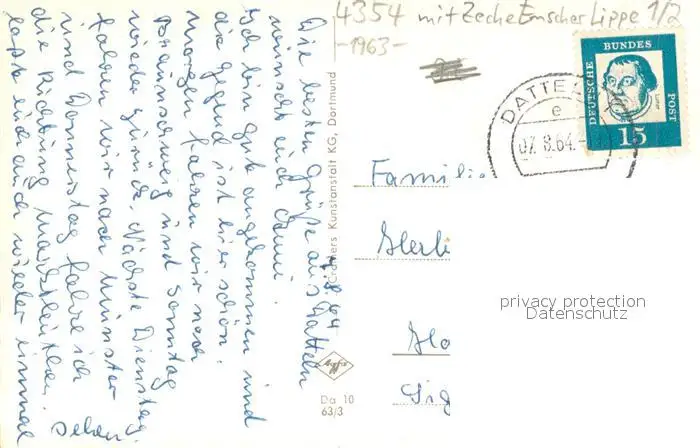 4354 mit Zeche Emscher Lippe 1/2
-1963-
DEUTSCHE BUNDES POST
15
DATTELN
e
07.8.64.-
7.8.64
Die besten Grüße aus Datteln
wünscht euch
Ich bin gut angekommen und
die Gegend ist hier schön.
Morgen fahren wir nach
Braunschweig und Sonntag
wieder zurück. Nächste Dienstag
fahren wir nach Münster
und Donnerstag fahre ich
die Richtung
laßt euch auch wieder einmal
sehen
Cramers Kunstanstalt KG, Dortmund
Agfa
Da 10
63/3
Familie
Herli
Glo
Sig
privacy protection
Datenschutz